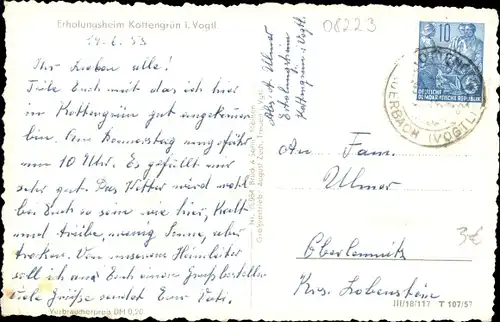 Erholungsheim Kottengrün i. Vogtl.
14.6.53
Ihr Lieben alle!
Teile Euch mit das ich hier
im Kottengrün gut angekommen
bin. Am Donnerstag ungefähr
um 10 Uhr. Es gefällt mir
sehr gut. Das Wetter wird wohl
bei Euch so sein wie hier, Kalt
und trübe, wenig Sonne, aber
troken. Von unserem Heimleiter
soll ich an Euch einen Gruß bestellen
viele Grüße sendet Euer Vati.
Verbraucherpreis DM 0,20
Abs. A. Ulmer
Erholungsheim
Kottengrün i. Vogtl.
08223
10
DEUTSCHE
DEMOKRATISCHE REPUBLIK
AUERBACH (VOGTL)
An Fam.
Ulmer
Oberlemnitz
Krs. Lobenstein
3€
III/18/117 T 107/57